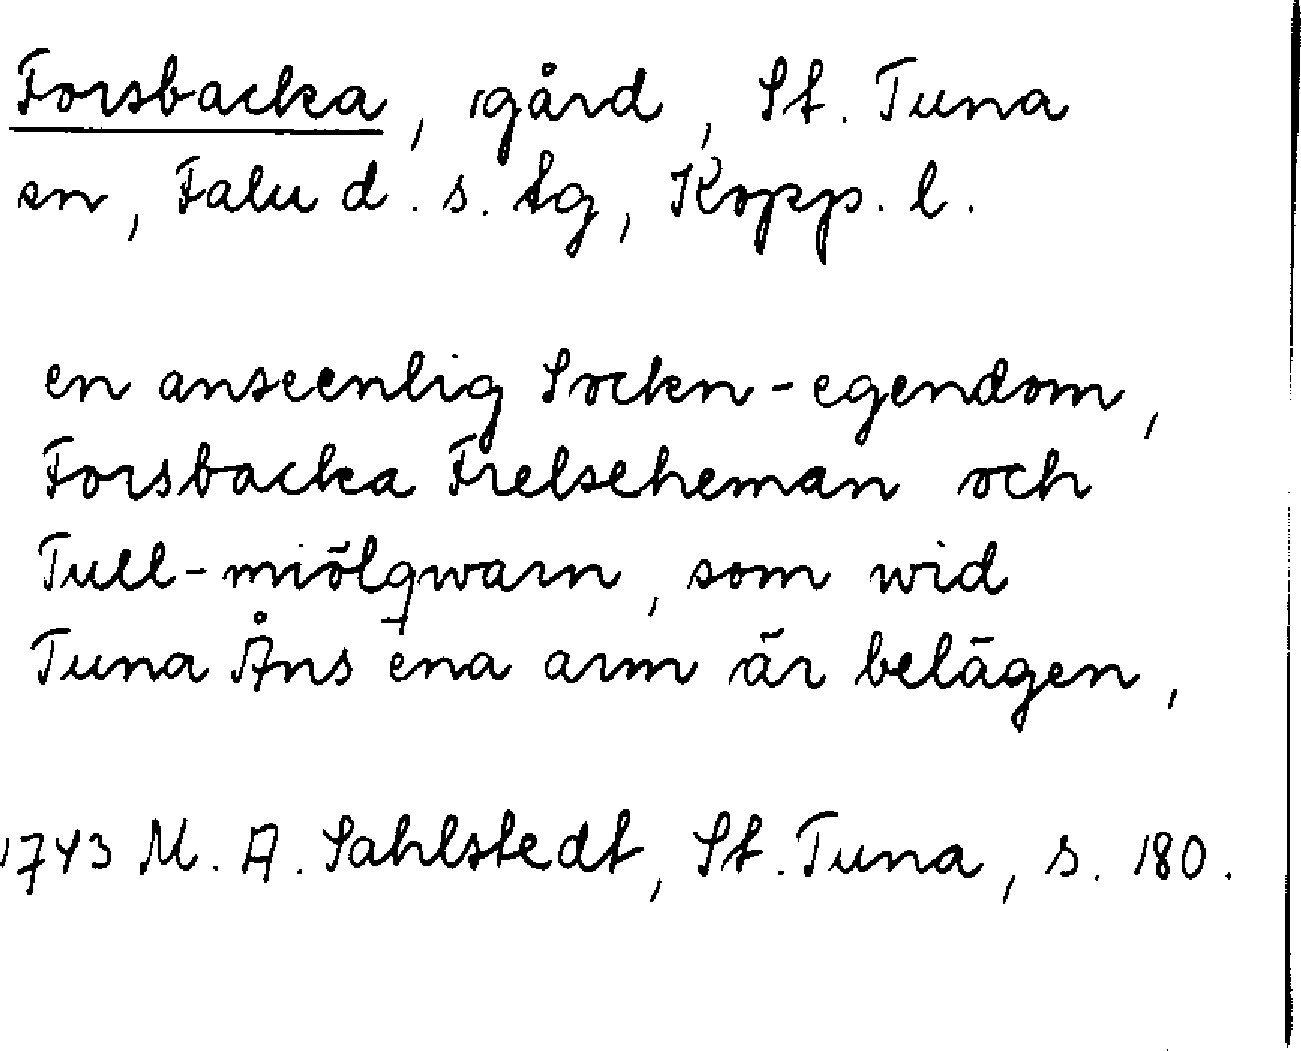 Forsbacka, gård, St. Tuna
sn, Falu d. s. tg, Kopp. l.
en anseenlig Sockn-egendom,
Forsbacka Frelseheman och
Tull-miölqwarn, som wid
Tuna Åns ena arm är belägen,
1743 M. A. Sahlstedt, St. Tuna, s. 180.